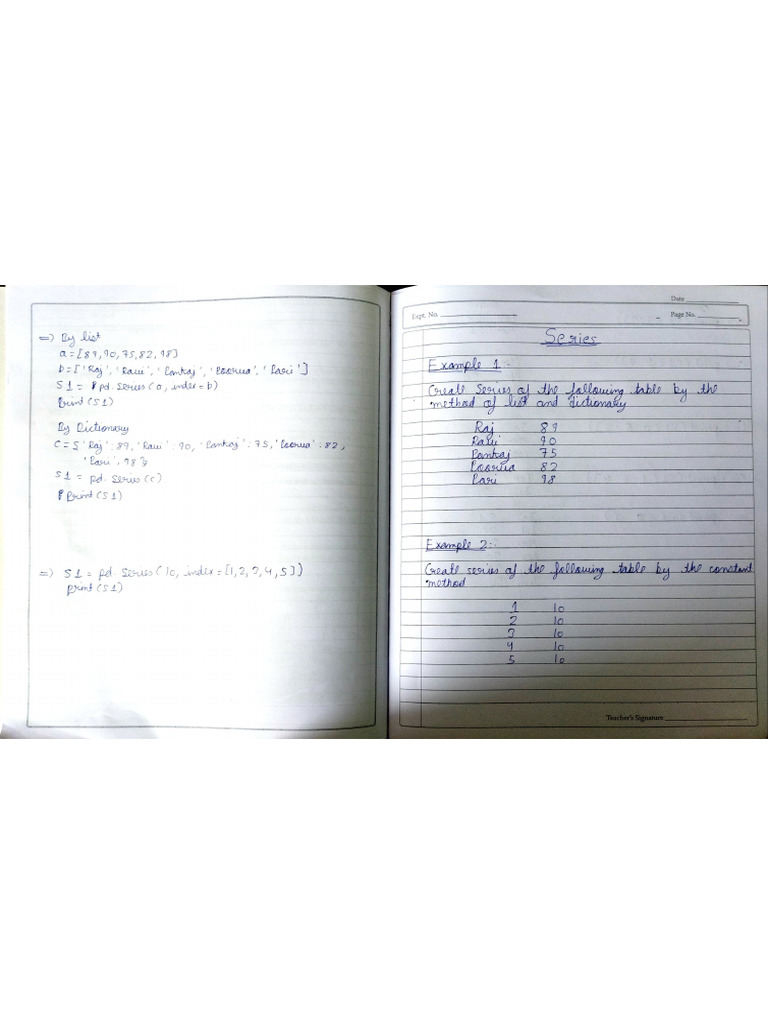 => By list
a = [89, 90, 75, 82, 98]
b = ['Raj', 'Ravi', 'Pankaj', 'Poorva', 'Pari']
S1 = pd. Series (a, index = b)
Print (S1)
By Dictionary
C = { 'Raj' : 89, 'Ravi' : 90, 'Pankaj' : 75, 'Poorva' : 82,
'Pari', 98 }
S1 = pd. Series (c)
Print (S1)
=> S1 = pd. Series ( 10, index = [1, 2, 3, 4, 5] )
print (S1)
Date
Expt. No. Page No.
Series
Example 1 :-
Create Series of the following table by the
method of list and dictionary
Raj 89
Ravi 90
Pankaj 75
Poorva 82
Pari 98
Example 2 :-
Create series of the following table by the constant
method
1 10
2 10
3 10
4 10
5 10
Teacher's Signature